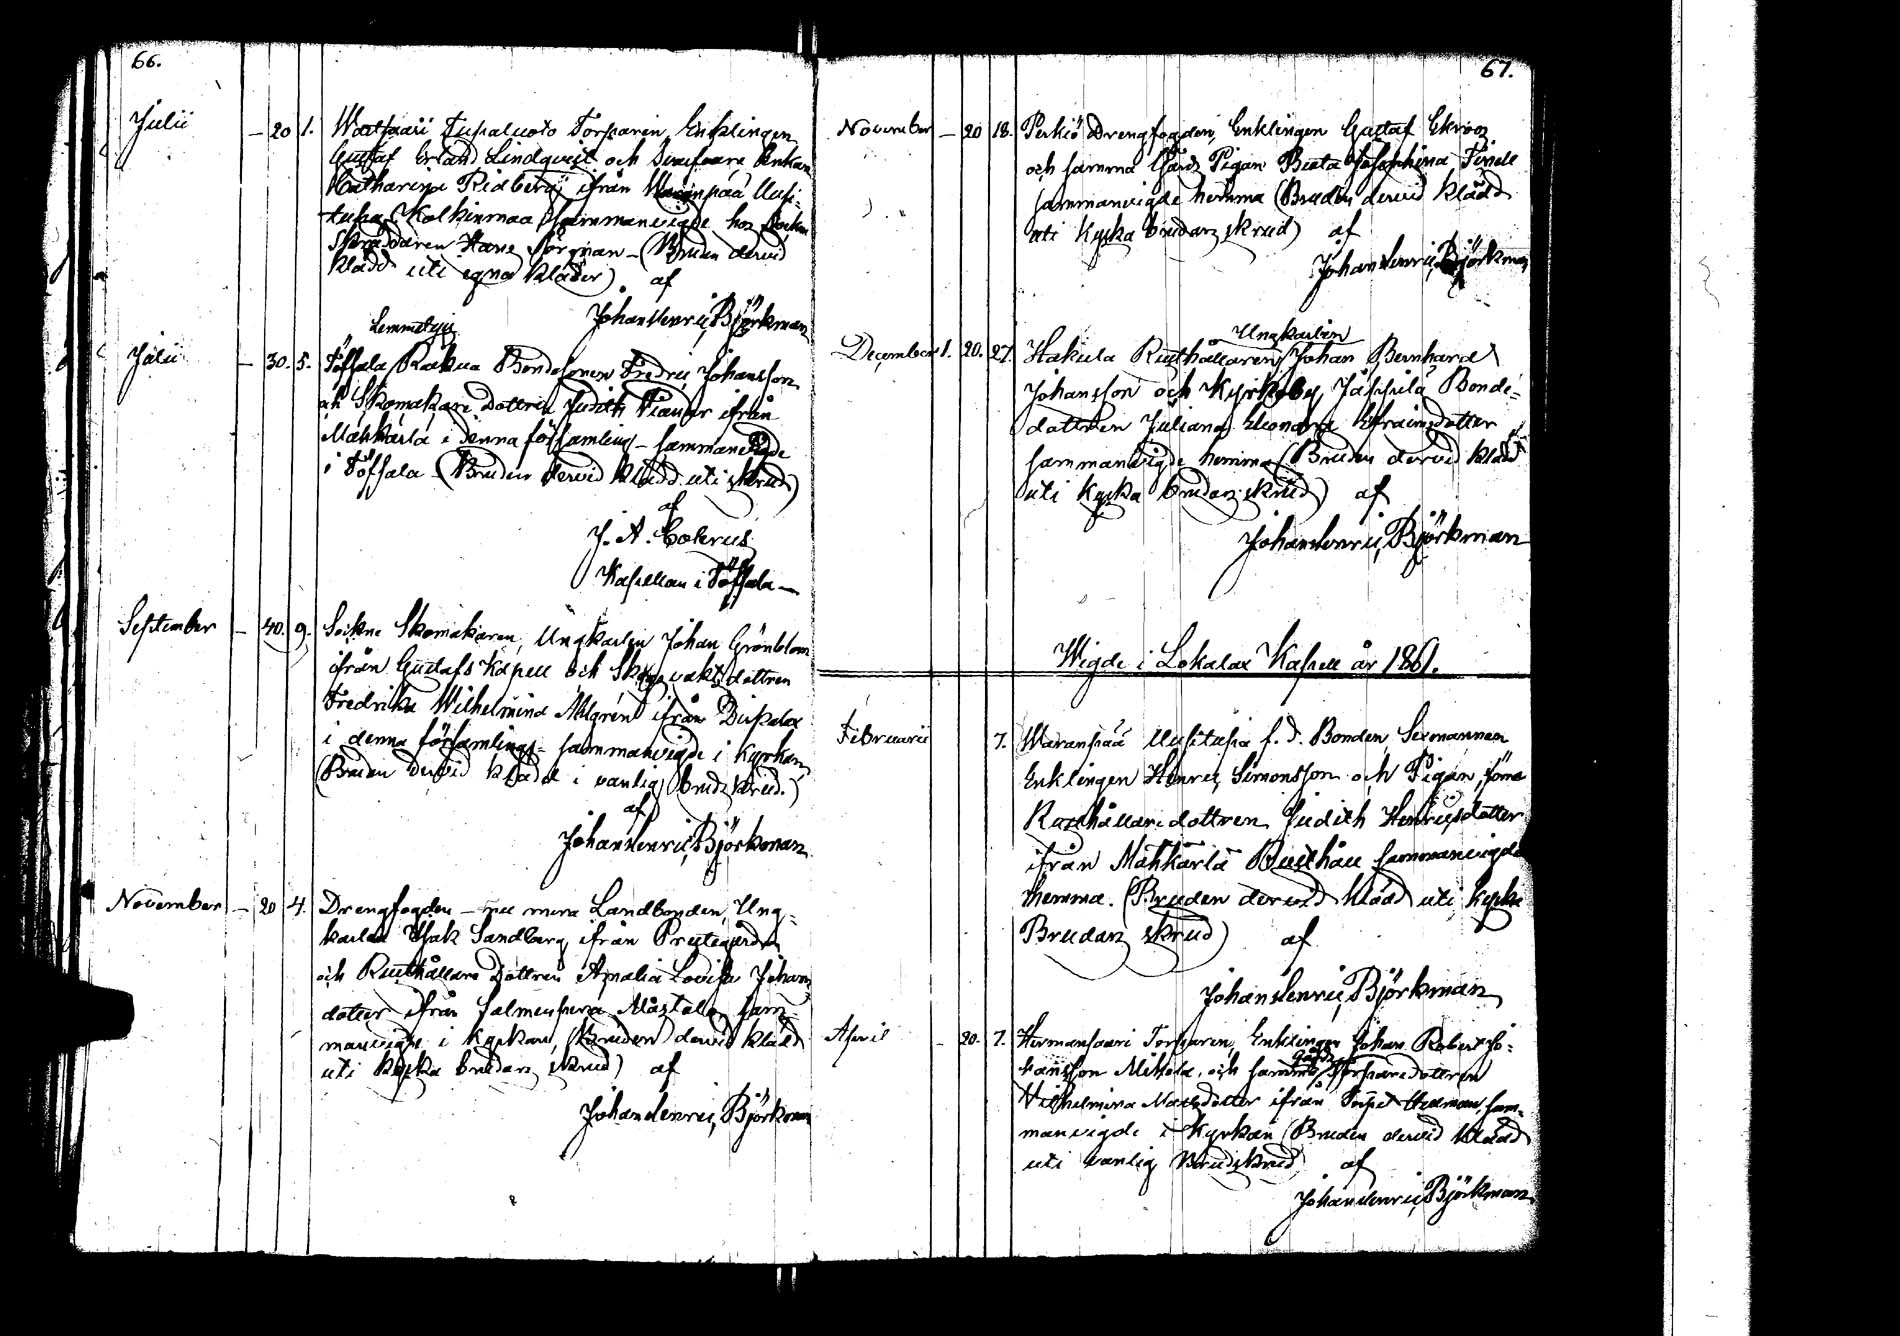 66.
Julii — 20 1. Torparen, Enklingen
Gustaf Erland Lindqvist och Enkan
Catharina Ridberg ifrån Waranpää Uusi-
tupa sammanvigde hos Sockne
Skräddaren Hans (Bruden dervid
klädd uti egna kläder) af
Johan Henric Björkman
Lemmetyis
Julii — 30. 5. Töfsala Bondesonen Fredric Johansson
och Skomakare Dottren Judith ifrån
Mahkarla i denna församling — sammanvigde
i Töfsala (Bruden dervid klädd uti skrud)
af
J. A. Cokerus
Kapellan i Töfsala —
September — 40. 9. Sockne Skomakaren, Ungkarlen Johan Grönblom
ifrån Gustafs Kapell och Skogsvaktsdottren
Fredrika Wilhelmina Ahlgrén ifrån
i denna församling sammanvigde i Kyrkan,
(Bruden dervid klädd i vanlig brudskrud.)
af
Johan Henric Björkman
November — 20 4. Drengfogden — nu mera Landbonden, Ung-
karlen Isak Sandberg ifrån Prestegården
och Rusthållare Dottren Amalia Lovisa Johans
dotter ifrån sam-
manvigde i Kyrkan, (Bruden dervid klädd
uti Kyrka brudans skrud) af
Johan Henric Björkman
67.
November — 20 18. Perkiö Drengfogden, Enklingen Gustaf Ekroos
och samma Gårds Pigan Beata Josephina
sammanvigde hemma (Bruden dervid klädd
uti Kyrka brudans skrud) af
Johan Henric Björkman
Ungkarlen
December 1. 20. 27. Hakula Rusthållaren, Johan Bernhard
Johansson och Kyrkoby Jäppilä Bonde-
dottren Juliana Eleonora Efraimsdotter
sammanvigde hemma (Bruden dervid klädd
uti Kyrka brudans skrud) af
Johan Henric Björkman
Wigde i Lokalax Kapell år 1861.
Februarii 7. Waranpää Uusitupa f. d. Bonden, Sexmannen
Enklingen Henric Simonsson och Pigan,
Rusthållaredottren Judith Henricsdotter
ifrån Mahkarla Rusthåll sammanvigde
hemma. (Bruden dervid klädd uti Kyrka
Brudans skrud) af
Johan Henric Björkman
April — 20. 7. Hermansaari Torparen, Enklingen Johan Robert Jo-
gårds
hansson Mikola, och samma Torparedottren
Wilhelmina Matsdotter ifrån Torpet sam-
manvigde i Kyrkan (Bruden dervid klädd
uti vanlig Brudskrud) af
Johan Henric Björkman